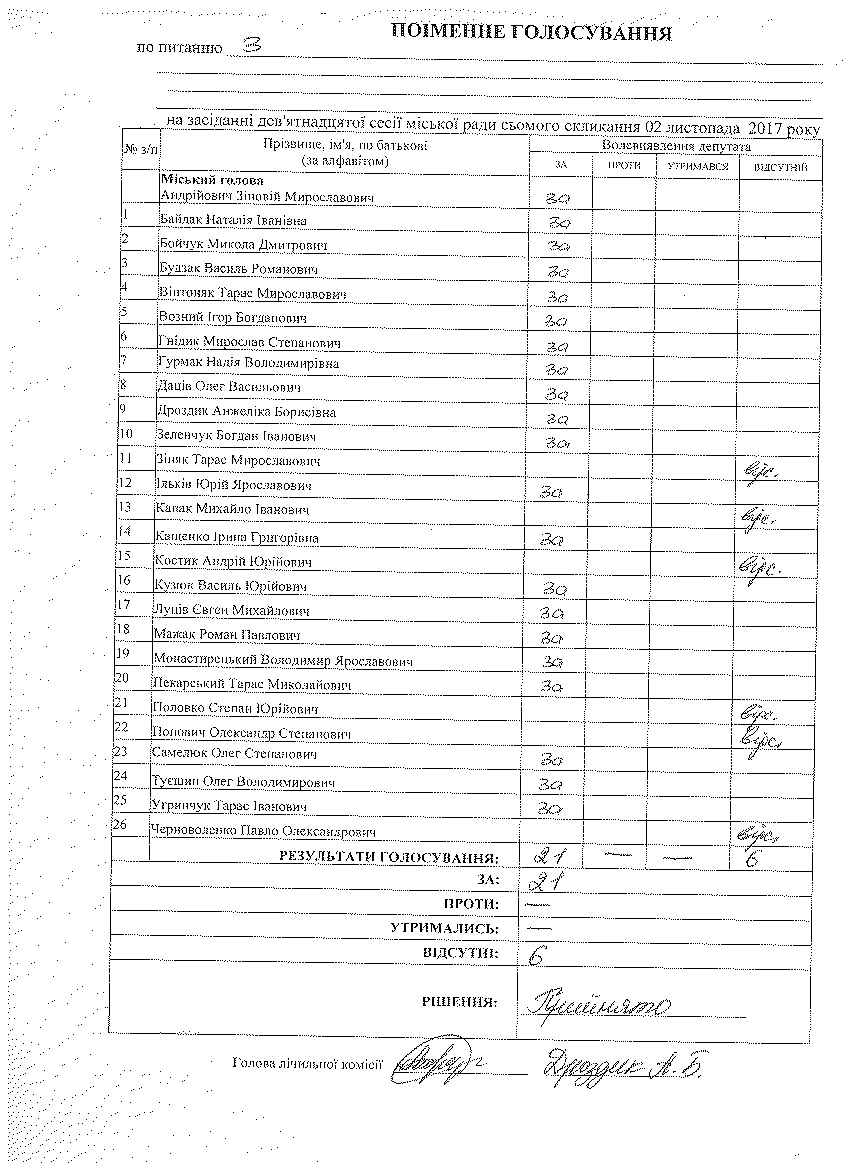 ПОІМЕННЕ ГОЛОСУВАННЯ
по питанню 3
на засіданні дев'ятнадцятої сесії міської ради сьомого скликання 02 листопада 2017 року
№ з/п Прізвище, ім'я, по батькові (за алфавітом) Волевиявлення депутата
ЗА ПРОТИ УТРИМАВСЯ ВІДСУТНІЙ
Міський голова
Андрійович Зіновій Мирославович за
1 Байдак Наталія Іванівна за
2 Бойчук Микола Дмитрович за
3 Будзак Василь Романович за
4 Вінтоняк Тарас Мирославович за
5 Возний Ігор Богданович за
6 Гнідик Мирослав Степанович за
7 Гурмак Надія Володимирівна за
8 Даців Олег Васильович за
9 Дроздик Анжеліка Борисівна за
10 Зеленчук Богдан Іванович за
11 Зіняк Тарас Мирославович відс.
12 Ільків Юрій Ярославович за
13 Капак Михайло Іванович відс.
14 Кащенко Ірина Григорівна за
15 Костик Андрій Юрійович відс.
16 Кузюк Василь Юрійович за
17 Луців Євген Михайлович за
18 Мажак Роман Павлович за
19 Монастирецький Володимир Ярославович за
20 Пекарський Тарас Миколайович за
21 Половко Степан Юрійович відс.
22 Попович Олександр Степанович відс.
23 Самелюк Олег Степанович за
24 Туєшин Олег Володимирович за
25 Угринчук Тарас Іванович за
26 Черноволенко Павло Олександрович відс.
РЕЗУЛЬТАТИ ГОЛОСУВАННЯ: 21 — — 6
ЗА: 21
ПРОТИ: —
УТРИМАЛИСЬ: —
ВІДСУТНІ: 6
РІШЕННЯ: Прийнято
Голова лічильної комісії Дроздик А. Б.